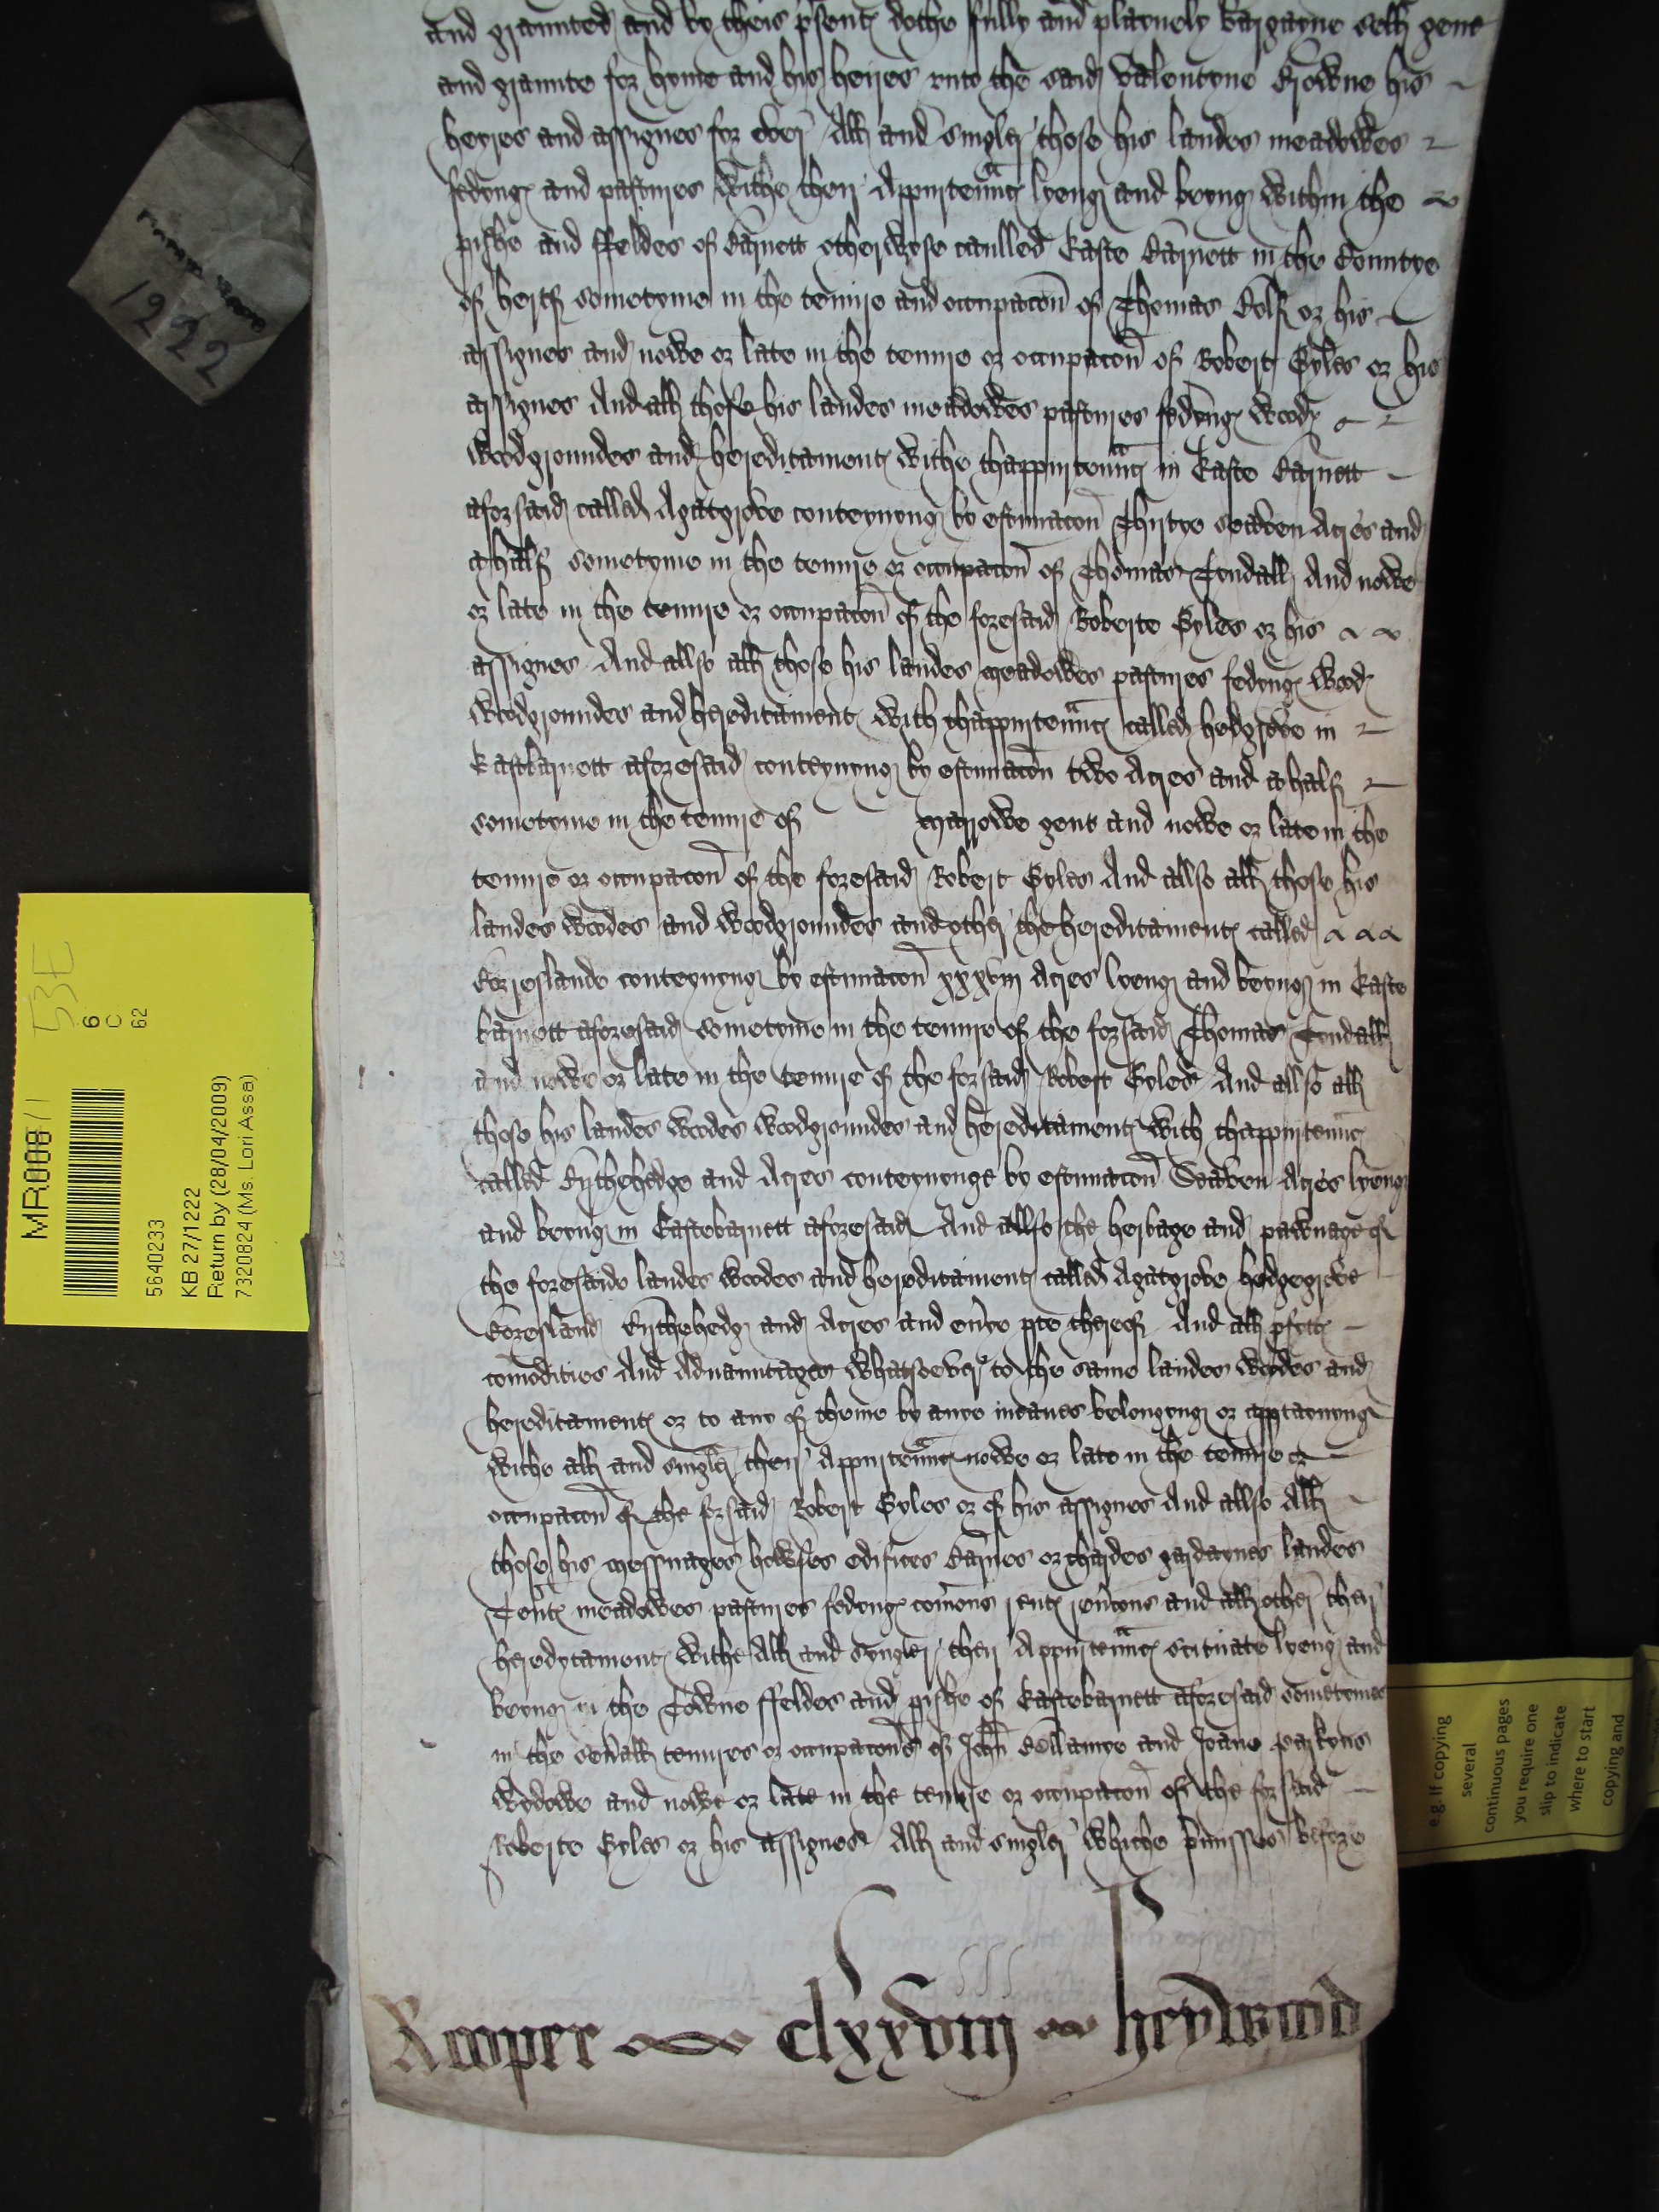 and graunted and by theis psent dothe fully and playnely bargayne sell geve
and graunte for hyme and his heires unto the said Valentyne Browne his
heyres and assignes for ever All and singler those his landes meadowes
fedyng and pastures withe their Appurtennc lyeng and beyng within the
pishe and ffeldes of Barnett otherwyse caulled Easte Barnett in the Countye
of hertf sometyme in the tenure and occupacon of Thomas Rolf or his
assignes and nowe or late in the tenure or occupacon of Robert Gyles or his
assignes And all those his landes meadowes pastures fedyng wood
woodgroundes and hereditament withe thappurtennc in Easte Barnett
aforsaid called Agatgrove conteynyng by estimacon Thirtye seaven Acres and
a half sometyme in the tenure or occupacon of Thomas Tendall And nowe
or late in the tenure or occupacon of the foresaid Roberte Gyles or his
assignes And allso all those his landes meadowes pastures fedyng wood
woodgroundes and hereditament with thappurtennc called hedgrove in
Eastbarnett aforesaid conteynyng by estimacon two Acres and a half
sometyme in the tenure of Marrowe gent and nowe or late in the
tenure or occupacon of the foresaid Robert Gyles And allso all those his
landes woodes and woodgroundes and other the hereditament called
conteynyng by estimacon xxxviij Acres lyeng and beyng in Easte
barnett aforesaid sometyme in the tenure of the forsaid Thomas Tendall
and nowe or late in the tenure of the forsaid Robert Gyles And allso all
those his landes woodes woodgroundes and hereditament with thappurtennc
called and Acres conteynynge by estimacon Seaven Acres lyeng
and beyng in Eastebarnett aforesaid And allso the herbage and pawnage of
the foresaide landes woodes and hereditament called Agatgrove hedgegrove
and Acres and evye pte thereof And all pfytt
comodities And Advauntages whatsoever to the same landes woodes and
hereditament or to any of theme by anye meanes belongyng or apptaynyng
withe all and singler their Appurtennc nowe or late in the tenure or
occupacon of the forsaid Robert Gyles or of his assignes And allso All
those his messuages howses edifices Barnes orchardes gardaynes landes
Tent meadowes pastures fedyng comons rent revcons and all other their
heredytament withe All and syngler their Appurtennc scituate lyeng and
beyng in the Towne ffeldes and pishe of Eastebarnett aforesaid sometymes
in the sevall tenures or occupacons of John Rollamye and Joane parkyns
wydowe and nowe or late in the tenure or occupacon of the forsaid
Roberte Gyles or his assignes All and singler whiche pmisses before
Rooper clxxviij heywood
1222
MR008/1
53E
6
C
62
5640233
KB 27/1222
Return by (28/04/2009)
7320824 (Ms. Lori Assa)
e.g. If copying
several
continuous pages
you require one
slip to indicate
where to start
copying and